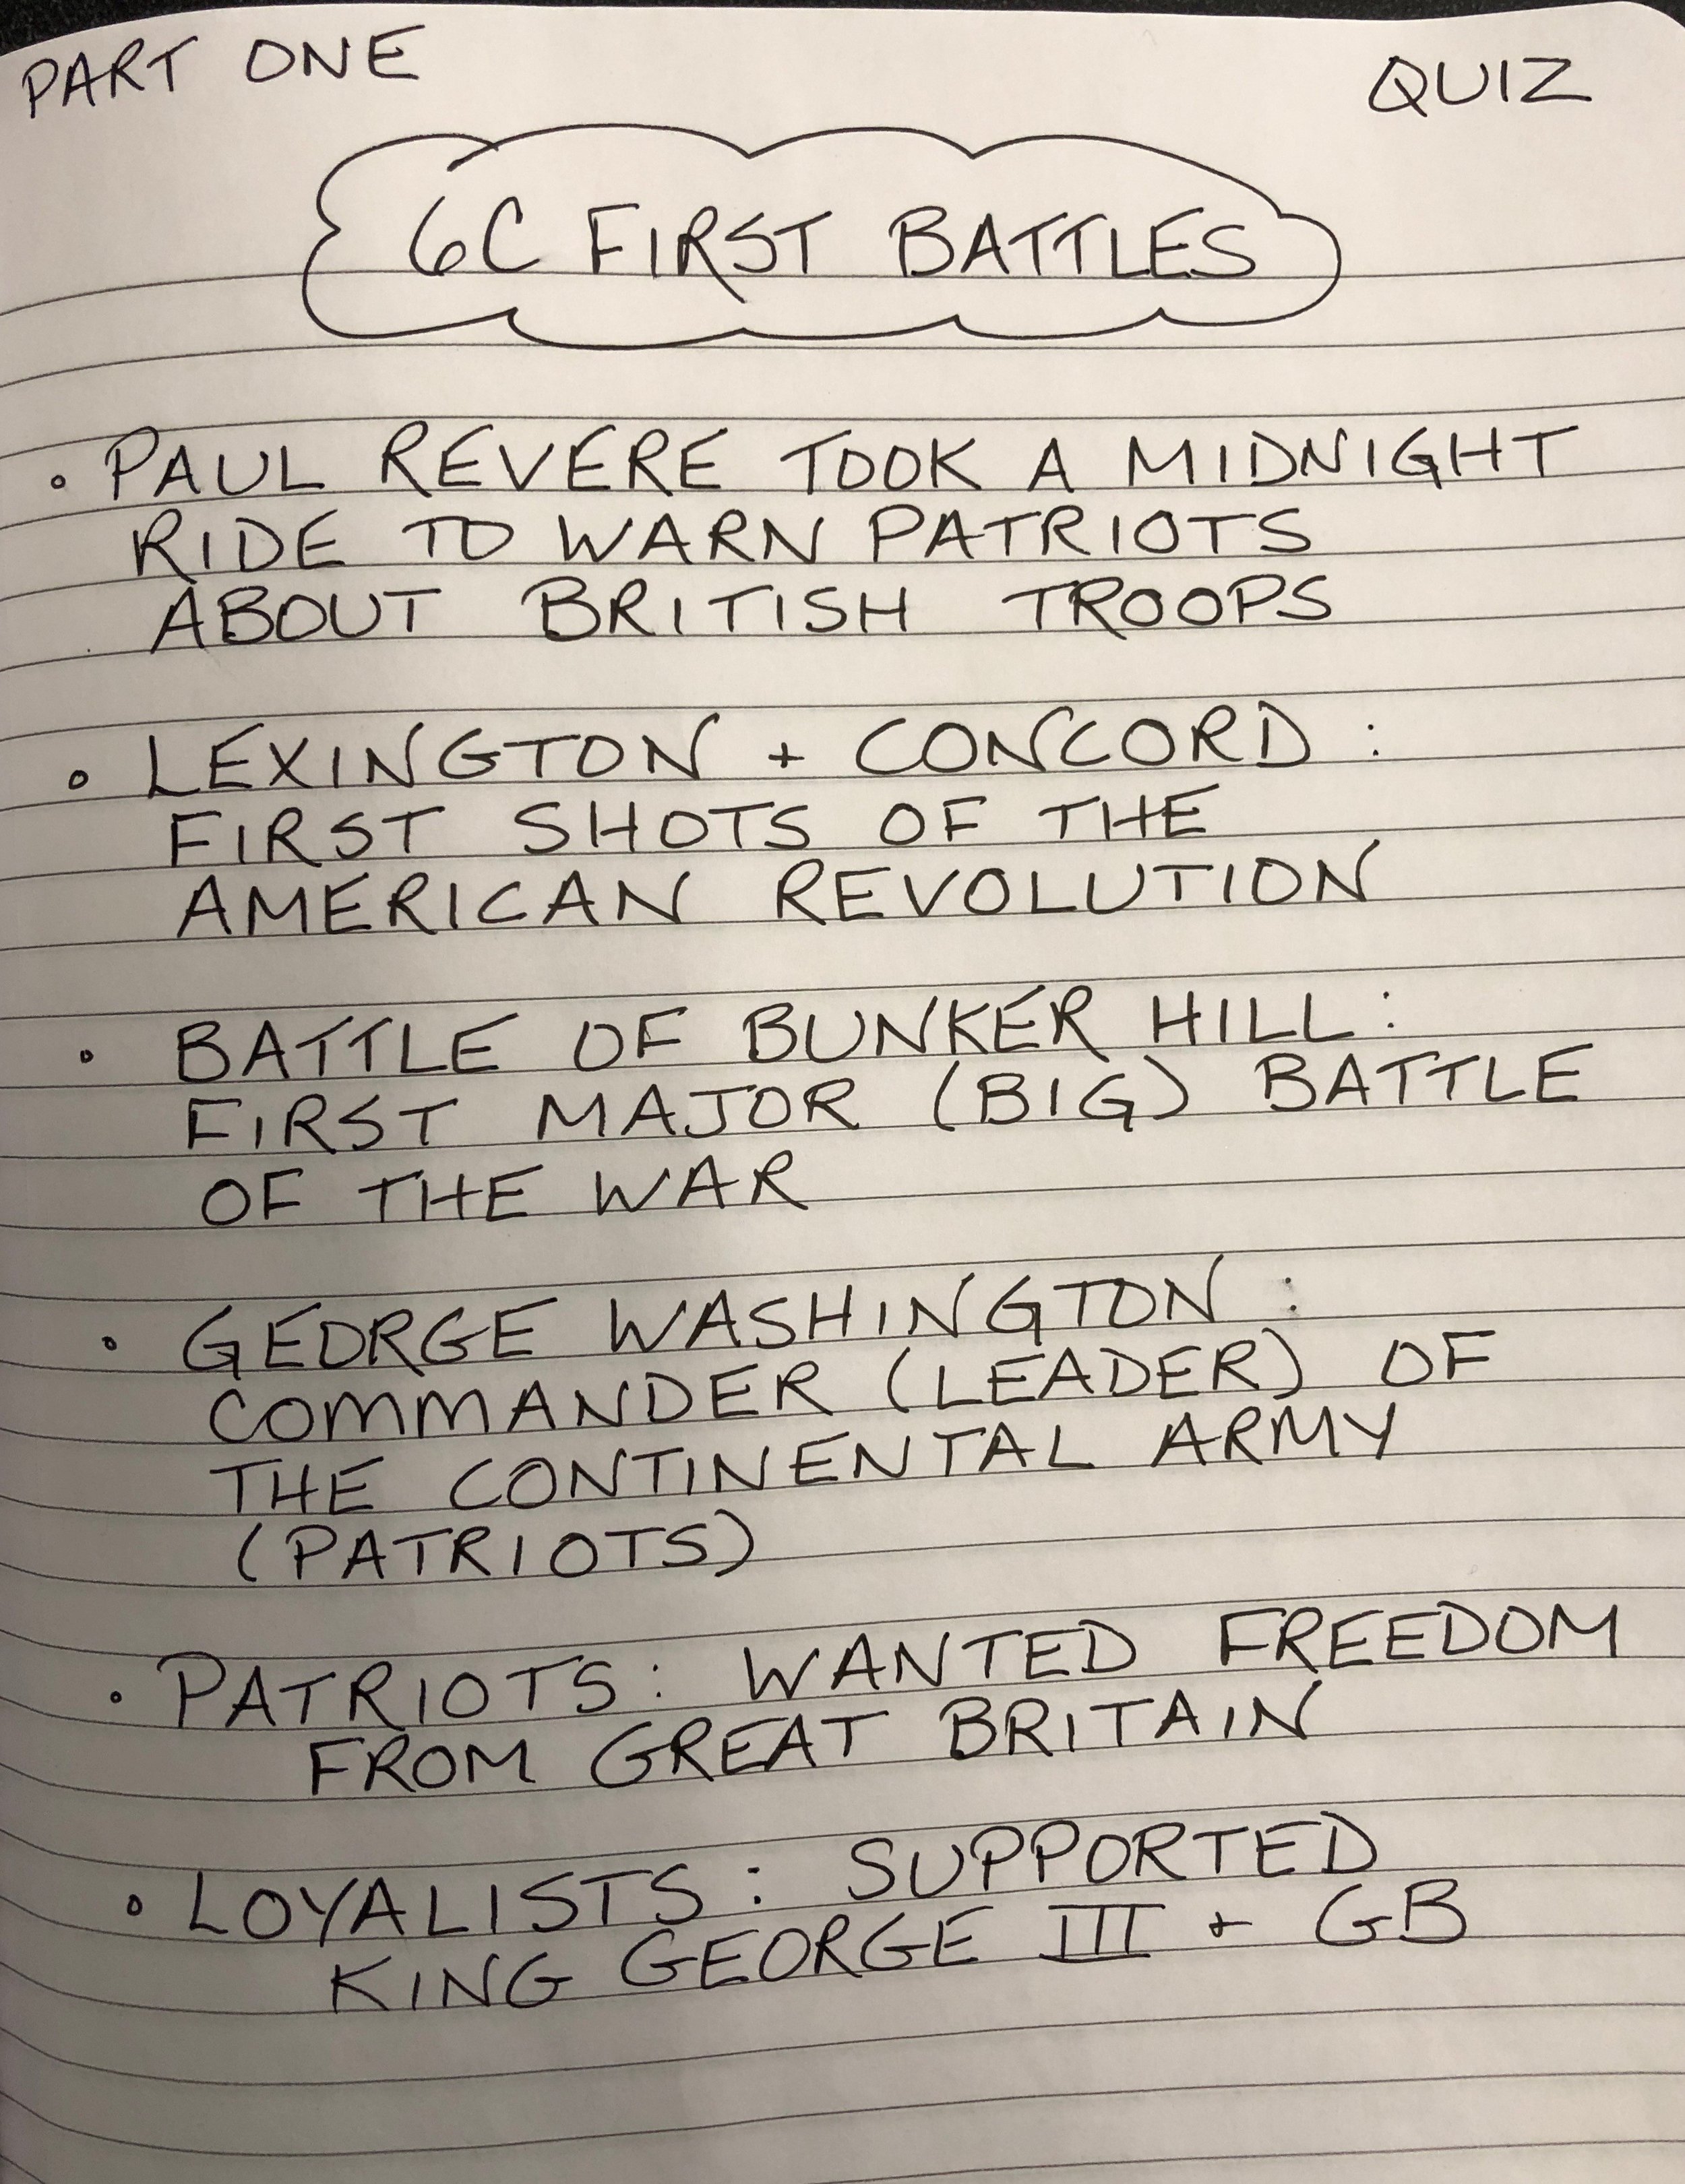 PART ONE
QUIZ
6C FIRST BATTLES
• PAUL REVERE TOOK A MIDNIGHT
RIDE TO WARN PATRIOTS
ABOUT BRITISH TROOPS
• LEXINGTON + CONCORD :
FIRST SHOTS OF THE
AMERICAN REVOLUTION
• BATTLE OF BUNKER HILL :
FIRST MAJOR (BIG) BATTLE
OF THE WAR
• GEORGE WASHINGTON :
COMMANDER (LEADER) OF
THE CONTINENTAL ARMY
(PATRIOTS)
• PATRIOTS : WANTED FREEDOM
FROM GREAT BRITAIN
• LOYALISTS : SUPPORTED
KING GEORGE III + GB